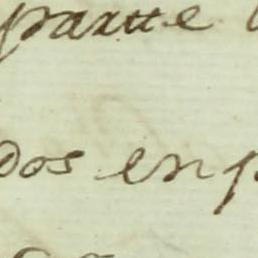 partte
dos en p